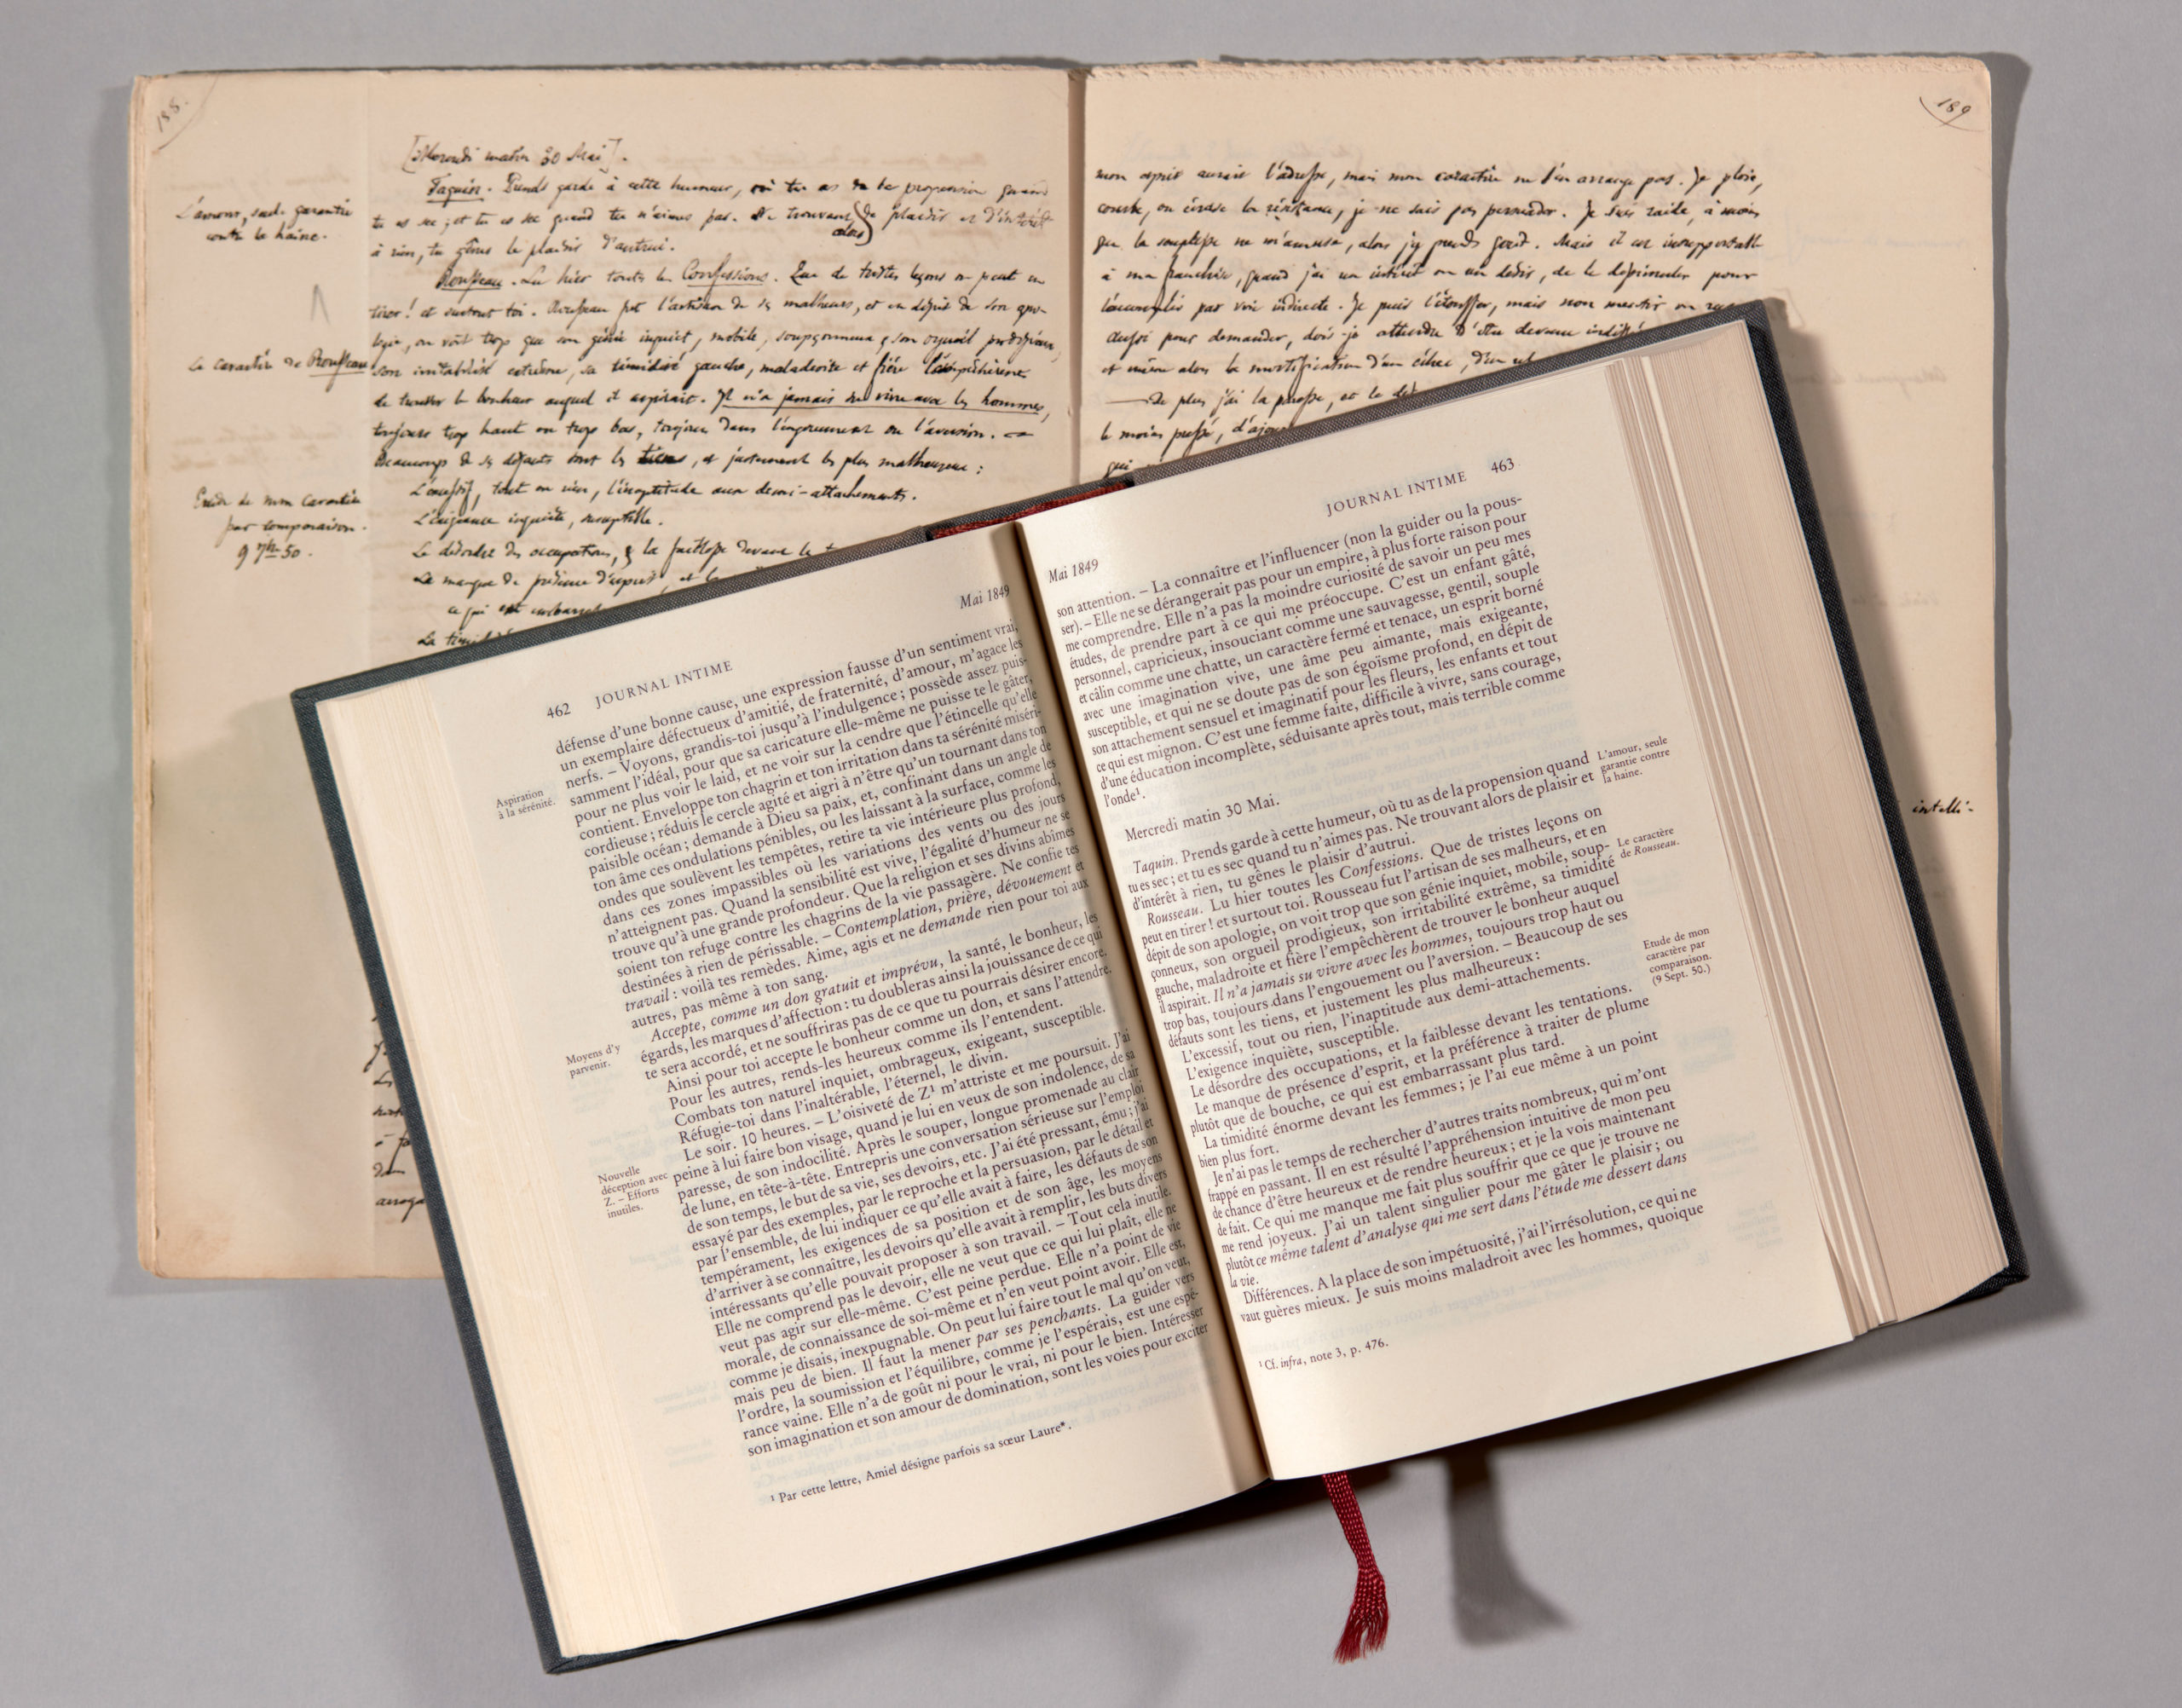 188.
[Mercredi matin 30 Mai].
Taquin. Prends garde à cette humeur, où tu as de la propension quand
tu es sec ; et tu es sec quand tu n'aimes pas. Ne trouvant alors de plaisir et d'intérêt
à rien, tu gênes le plaisir d'autrui.
Rousseau. Lu hier toutes les Confessions. Que de tristes leçons on peut en
tirer ! et surtout toi. Rousseau fut l'artisan de ses malheurs, et en dépit de son apo-
logie, on voit trop que son génie inquiet, mobile, soupçonneux, son orgueil prodigieux,
son irritabilité extrême, sa timidité gauche, maladroite et fière l'empêchèrent
de trouver le bonheur auquel il aspirait. Il n'a jamais su vivre avec les hommes,
toujours trop haut ou trop bas, toujours dans l'engouement ou l'aversion. —
Beaucoup de ses défauts sont les tiens, et justement les plus malheureux :
L'excessif, tout ou rien, l'inaptitude aux demi-attachements.
L'exigence inquiète, susceptible.
Le désordre des occupations, & la faiblesse devant les
Le manque de présence d'esprit, et la
ce qui est embarrassant
La timidité
L'amour, seule garantie
contre la haine.
Le caractère de Rousseau
Etude de mon caractère
par comparaison.
9 7bre 50.
189
mon esprit aurait l'adresse, mais mon caractère ne s'en arrange pas. Je ploie,
courbe, ou écrase la résistance, je ne sais pas persuader. Je suis raide, à moins
que la souplesse ne m'amuse, alors j'y prends goût. Mais il est insupportable
à ma franchise, quand j'ai un intérêt ou un désir, de le dissimuler pour
l'accomplir par voie indirecte. Je puis l'étouffer, mais non mentir ou ruser
Aussi pour demander, dois-je attendre d'être devenu
et même alors la mortification d'un échec, d'un
— De plus j'ai la paresse, et le
le moins pressé,
qui
intelli-
462 JOURNAL INTIME
Mai 1849
défense d'une bonne cause, une expression fausse d'un sentiment vrai,
un exemplaire défectueux d'amitié, de fraternité, d'amour, m'agace les
nerfs. – Voyons, grandis-toi jusqu'à l'indulgence ; possède assez puis-
samment l'idéal, pour que sa caricature elle-même ne puisse te le gâter,
pour ne plus voir le laid, et ne voir sur la cendre que l'étincelle qu'elle
contient. Enveloppe ton chagrin et ton irritation dans ta sérénité miséri-
cordieuse ; réduis le cercle agité et aigri à n'être qu'un tournant dans ton
paisible océan ; demande à Dieu sa paix, et, confinant dans un angle de
ton âme ces ondulations pénibles, ou les laissant à la surface, comme les
ondes que soulèvent les tempêtes, retire ta vie intérieure plus profond,
dans ces zones impassibles où les variations des vents ou des jours
n'atteignent pas. Quand la sensibilité est vive, l'égalité d'humeur ne se
trouve qu'à une grande profondeur. Que la religion et ses divins abîmes
soient ton refuge contre les chagrins de la vie passagère. Ne confie tes
destinées à rien de périssable. – Contemplation, prière, dévouement et
travail : voilà tes remèdes. Aime, agis et ne demande rien pour toi aux
autres, pas même à ton sang.
Accepte, comme un don gratuit et imprévu, la santé, le bonheur, les
égards, les marques d'affection : tu doubleras ainsi la jouissance de ce qui
te sera accordé, et ne souffriras pas de ce que tu pourrais désirer encore.
Ainsi pour toi accepte le bonheur comme un don, et sans l'attendre.
Pour les autres, rends-les heureux comme ils l'entendent.
Combats ton naturel inquiet, ombrageux, exigeant, susceptible.
Réfugie-toi dans l'inaltérable, l'éternel, le divin.
Le soir. 10 heures. – L'oisiveté de Z¹ m'attriste et me poursuit. J'ai
peine à lui faire bon visage, quand je lui en veux de son indolence, de sa
paresse, de son indocilité. Après le souper, longue promenade au clair
de lune, en tête-à-tête. Entrepris une conversation sérieuse sur l'emploi
de son temps, le but de sa vie, ses devoirs, etc. J'ai été pressant, ému ; j'ai
essayé par des exemples, par le reproche et la persuasion, par le détail et
par l'ensemble, de lui indiquer ce qu'elle avait à faire, les défauts de son
tempérament, les exigences de sa position et de son âge, les moyens
d'arriver à se connaître, les devoirs qu'elle avait à remplir, les buts divers
intéressants qu'elle pouvait proposer à son travail. – Tout cela inutile.
Elle ne comprend pas le devoir, elle ne veut que ce qui lui plaît, elle ne
veut pas agir sur elle-même. C'est peine perdue. Elle n'a point de vie
morale, de connaissance de soi-même et n'en veut point avoir. Elle est,
comme je disais, inexpugnable. On peut lui faire tout le mal qu'on veut,
mais peu de bien. Il faut la mener par ses penchants. La guider vers
l'ordre, la soumission et l'équilibre, comme je l'espérais, est une espé-
rance vaine. Elle n'a de goût ni pour le vrai, ni pour le bien. Intéresser
son imagination et son amour de domination, sont les voies pour exciter
Aspiration
à la sérénité.
Moyens d'y
parvenir.
Nouvelle
déception avec
Z. – Efforts
inutiles.
¹ Par cette lettre, Amiel désigne parfois sa sœur Laure*.
Mai 1849
JOURNAL INTIME 463
son attention. – La connaître et l'influencer (non la guider ou la pous-
ser). – Elle ne se dérangerait pas pour un empire, à plus forte raison pour
me comprendre. Elle n'a pas la moindre curiosité de savoir un peu mes
études, de prendre part à ce qui me préoccupe. C'est un enfant gâté,
personnel, capricieux, insouciant comme une sauvagesse, gentil, souple
et câlin comme une chatte, un caractère fermé et tenace, un esprit borné
avec une imagination vive, une âme peu aimante, mais exigeante,
susceptible, et qui ne se doute pas de son égoïsme profond, en dépit de
son attachement sensuel et imaginatif pour les fleurs, les enfants et tout
ce qui est mignon. C'est une femme faite, difficile à vivre, sans courage,
d'une éducation incomplète, séduisante après tout, mais terrible comme
l'onde¹.
Mercredi matin 30 Mai.
Taquin. Prends garde à cette humeur, où tu as de la propension quand
tu es sec ; et tu es sec quand tu n'aimes pas. Ne trouvant alors de plaisir et
d'intérêt à rien, tu gênes le plaisir d'autrui.
Rousseau. Lu hier toutes les Confessions. Que de tristes leçons on
peut en tirer ! et surtout toi. Rousseau fut l'artisan de ses malheurs, et en
dépit de son apologie, on voit trop que son génie inquiet, mobile, soup-
çonneux, son orgueil prodigieux, son irritabilité extrême, sa timidité
gauche, maladroite et fière l'empêchèrent de trouver le bonheur auquel
il aspirait. Il n'a jamais su vivre avec les hommes, toujours trop haut ou
trop bas, toujours dans l'engouement ou l'aversion. – Beaucoup de ses
défauts sont les tiens, et justement les plus malheureux :
L'excessif, tout ou rien, l'inaptitude aux demi-attachements.
L'exigence inquiète, susceptible.
Le désordre des occupations, et la faiblesse devant les tentations.
Le manque de présence d'esprit, et la préférence à traiter de plume
plutôt que de bouche, ce qui est embarrassant plus tard.
La timidité énorme devant les femmes ; je l'ai eue même à un point
bien plus fort.
Je n'ai pas le temps de rechercher d'autres traits nombreux, qui m'ont
frappé en passant. Il en est résulté l'appréhension intuitive de mon peu
de chance d'être heureux et de rendre heureux ; et je la vois maintenant
de fait. Ce qui me manque me fait plus souffrir que ce que je trouve ne
me rend joyeux. J'ai un talent singulier pour me gâter le plaisir ; ou
plutôt ce même talent d'analyse qui me sert dans l'étude me dessert dans
la vie.
Différences. A la place de son impétuosité, j'ai l'irrésolution, ce qui ne
vaut guères mieux. Je suis moins maladroit avec les hommes, quoique
L'amour, seule
garantie contre
la haine.
Le caractère
de Rousseau.
Etude de mon
caractère par
comparaison.
(9 Sept. 50.)
¹ Cf. infra, note 3, p. 476.